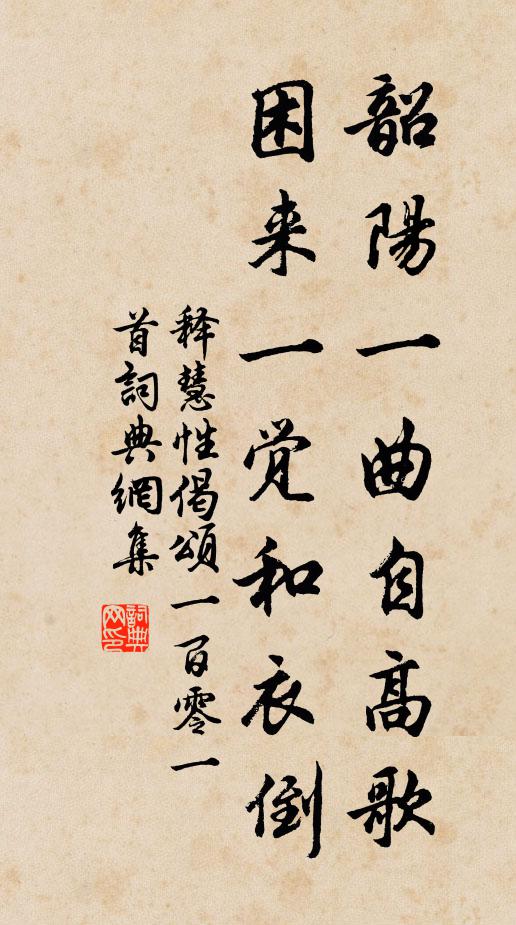 韶陽一曲自高歌
困来一觉和衣倒
释慧性偈頌一百零一
首詞典網集
詞典网印